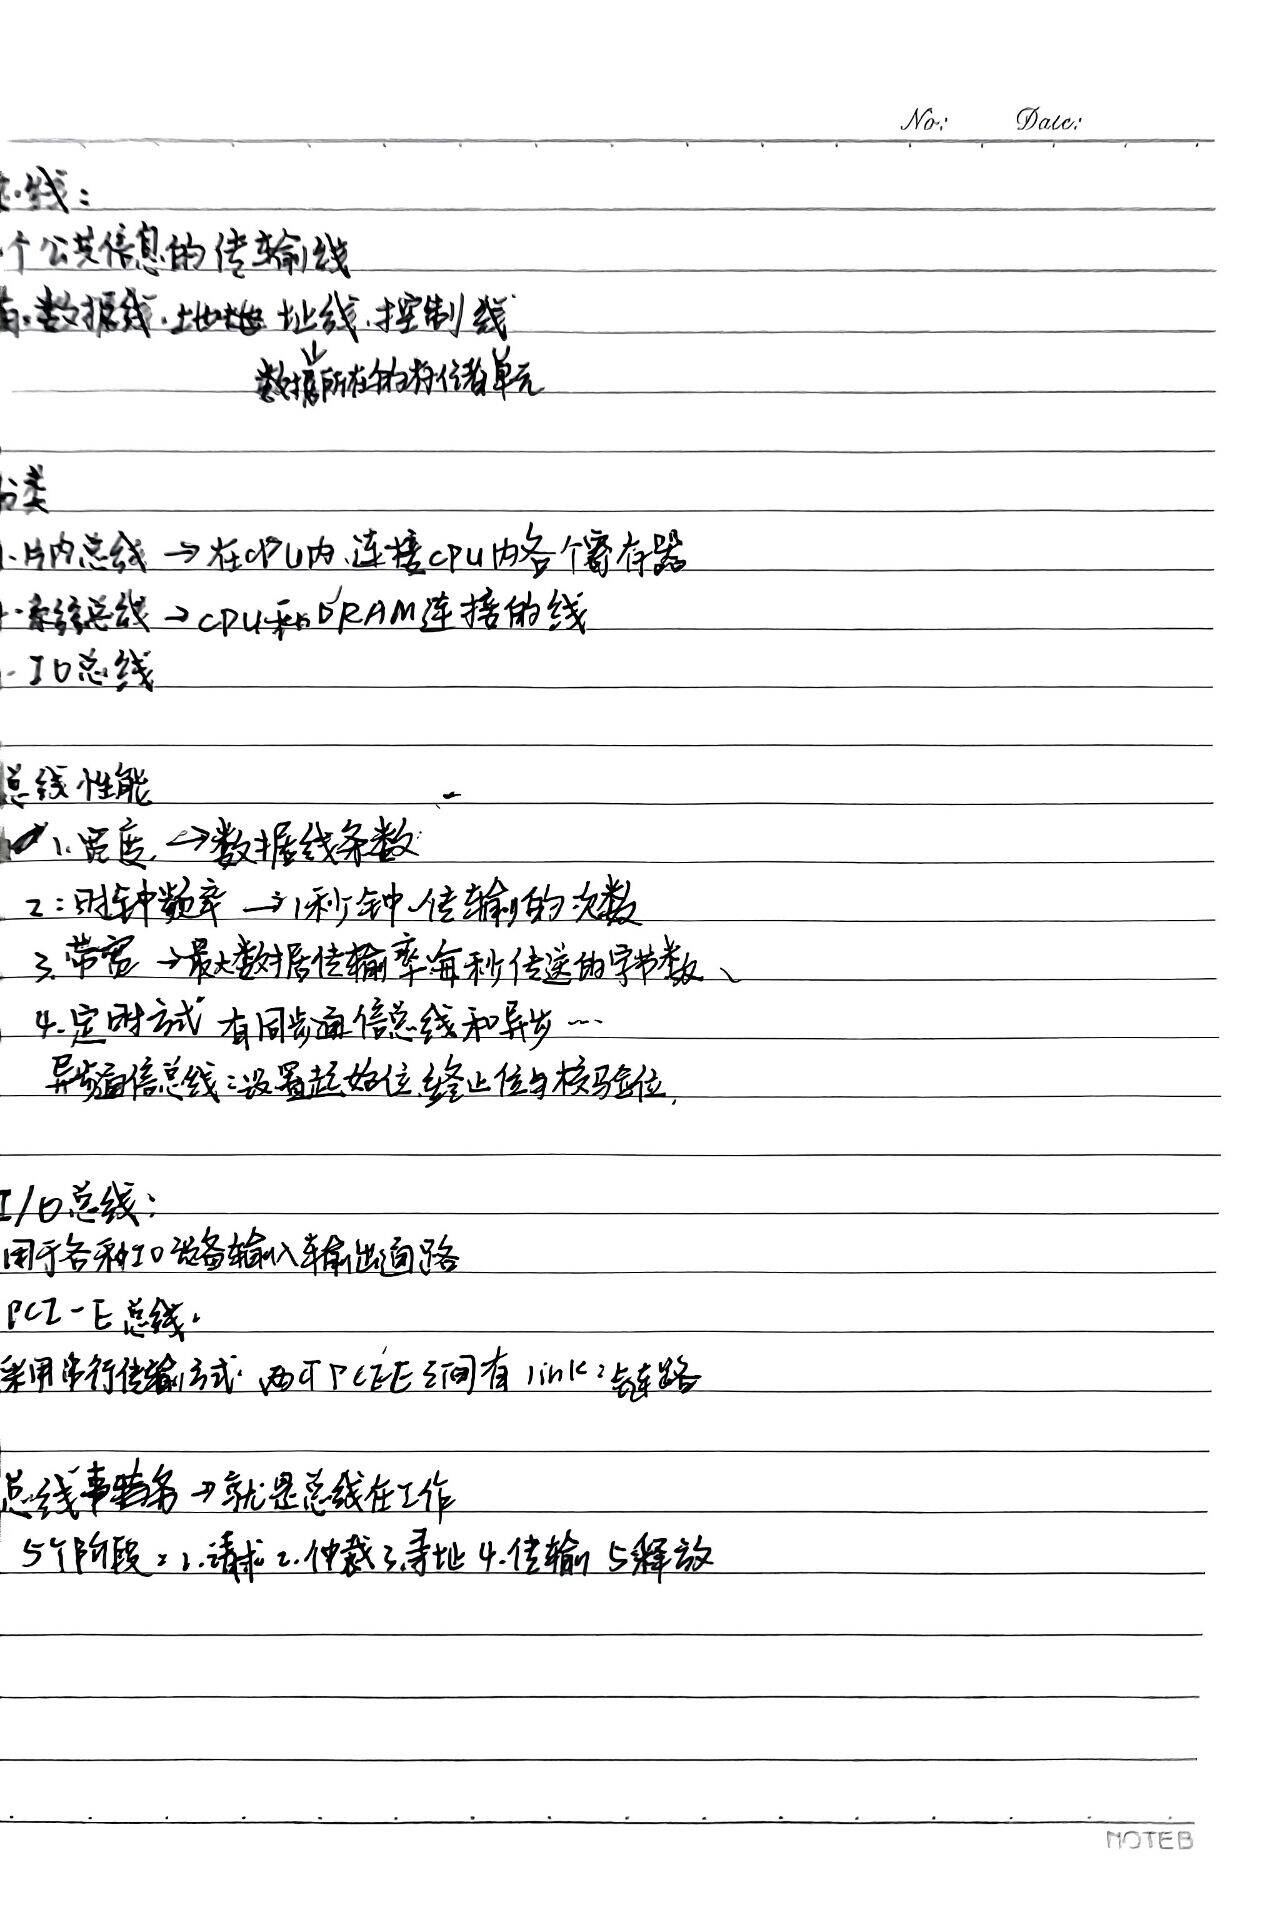 No: Date:
总线：
个公共信息的传输线
有.数据线.地址线.控制线
数据所在的存储单元
分类
1.片内总线 →在CPU内.连接CPU内各个寄存器
系统总线→CPU和DRAM连接的线
IO总线
总线性能
1.宽度.→数据线条数
2:时钟频率 →1秒钟传输的次数
3.带宽 →最大数据传输率每秒传送的字节数、
4.定时方式 有同步通信总线和异步…
异步通信总线：设置起始位.终止位与校验位.
I/O总线：
用于各种IO设备输入输出通路
PCI-E总线.
采用串行传输方式.两个PCIE之间有link：链路
总线事务→就是总线在工作
5个阶段：1.请求2.仲裁3.寻址4.传输5释放
NOTEB